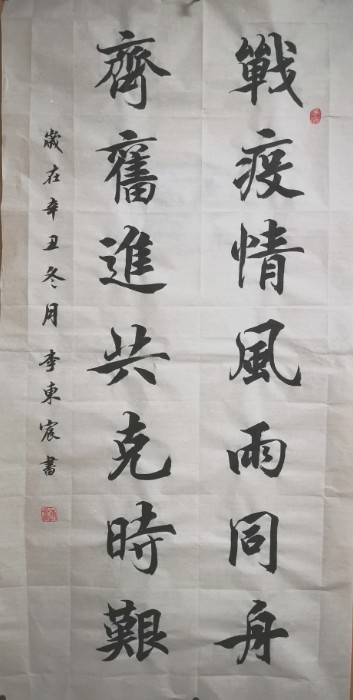 戰疫情風雨同舟
齊奮進共克時艱
歲在辛丑冬月李東宸書